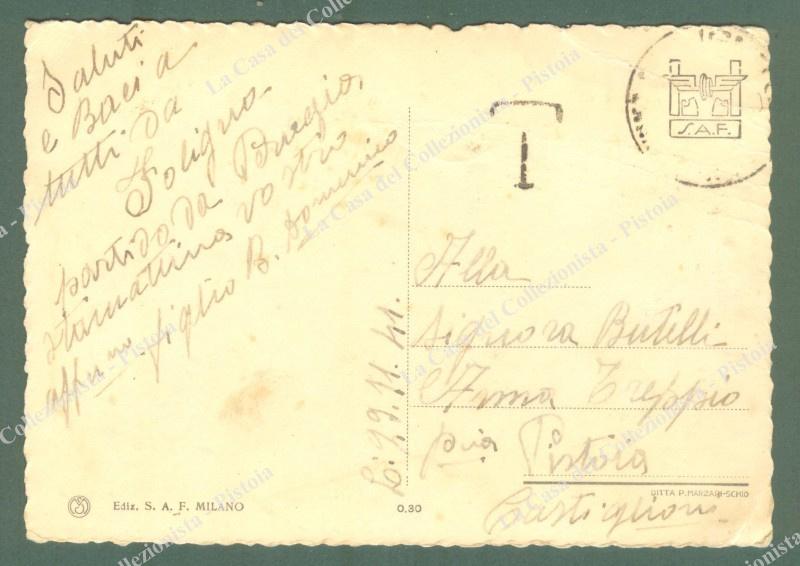 Saluti
e Baci a
tutti da
Foligno.
partido da
stamattina vostro
aff.mo figlio B. Domenico
Li 29.11.41.
T
S.A.F.
Alla
Signora Butelli
Anna Treppio
Pistoia
Castiglioni
DITTA P. MARZARI-SCHIO
Ediz. S. A. F. MILANO
0,30
La Casa del Collezionista - Pistoia